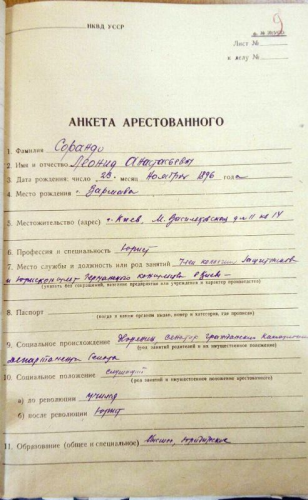 НКВД УССР
9
Лист №
к делу №
АНКЕТА АРЕСТОВАННОГО
1. Фамилия Сорандо
2. Имя и отчество Леонид Анастасьевич
3. Дата рождения: число 28 месяц ноября 1896 года
4. Место рождения г. Варшава
5. Местожительство (адрес) г. Киев, М. Васильковская д № 11 кв 14
6. Профессия и специальность Юрист
7. Место службы и должность или род занятий Член коллегии защитников
и юрисконсульт
(указать, без сокращений, название предприятия или учреждения и характер производства)
8. Паспорт
(когда и каким органом выдан, номер и категория, где прописан)
9. Социальное происхождение
(род занятий родителей и их имущественное положение)
департамента Сената
10. Социальное положение служащий
(род занятий и имущественное положение арестованного)
а) до революции учился
б) после революции Юрист
11. Образование (общее и специальное) Высшее, юридическое